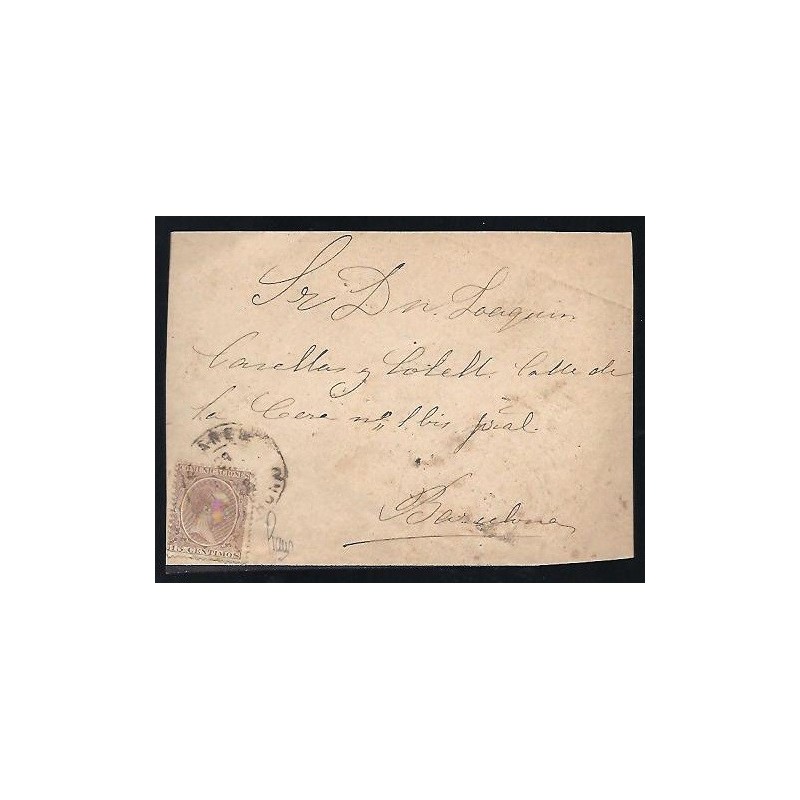 Sr Dn. Joaquin
Casellas y Cotell. Calle de
la Cera nº 1 bis pral.
Barcelona
COMUNICACIONES
15 CENTIMOS